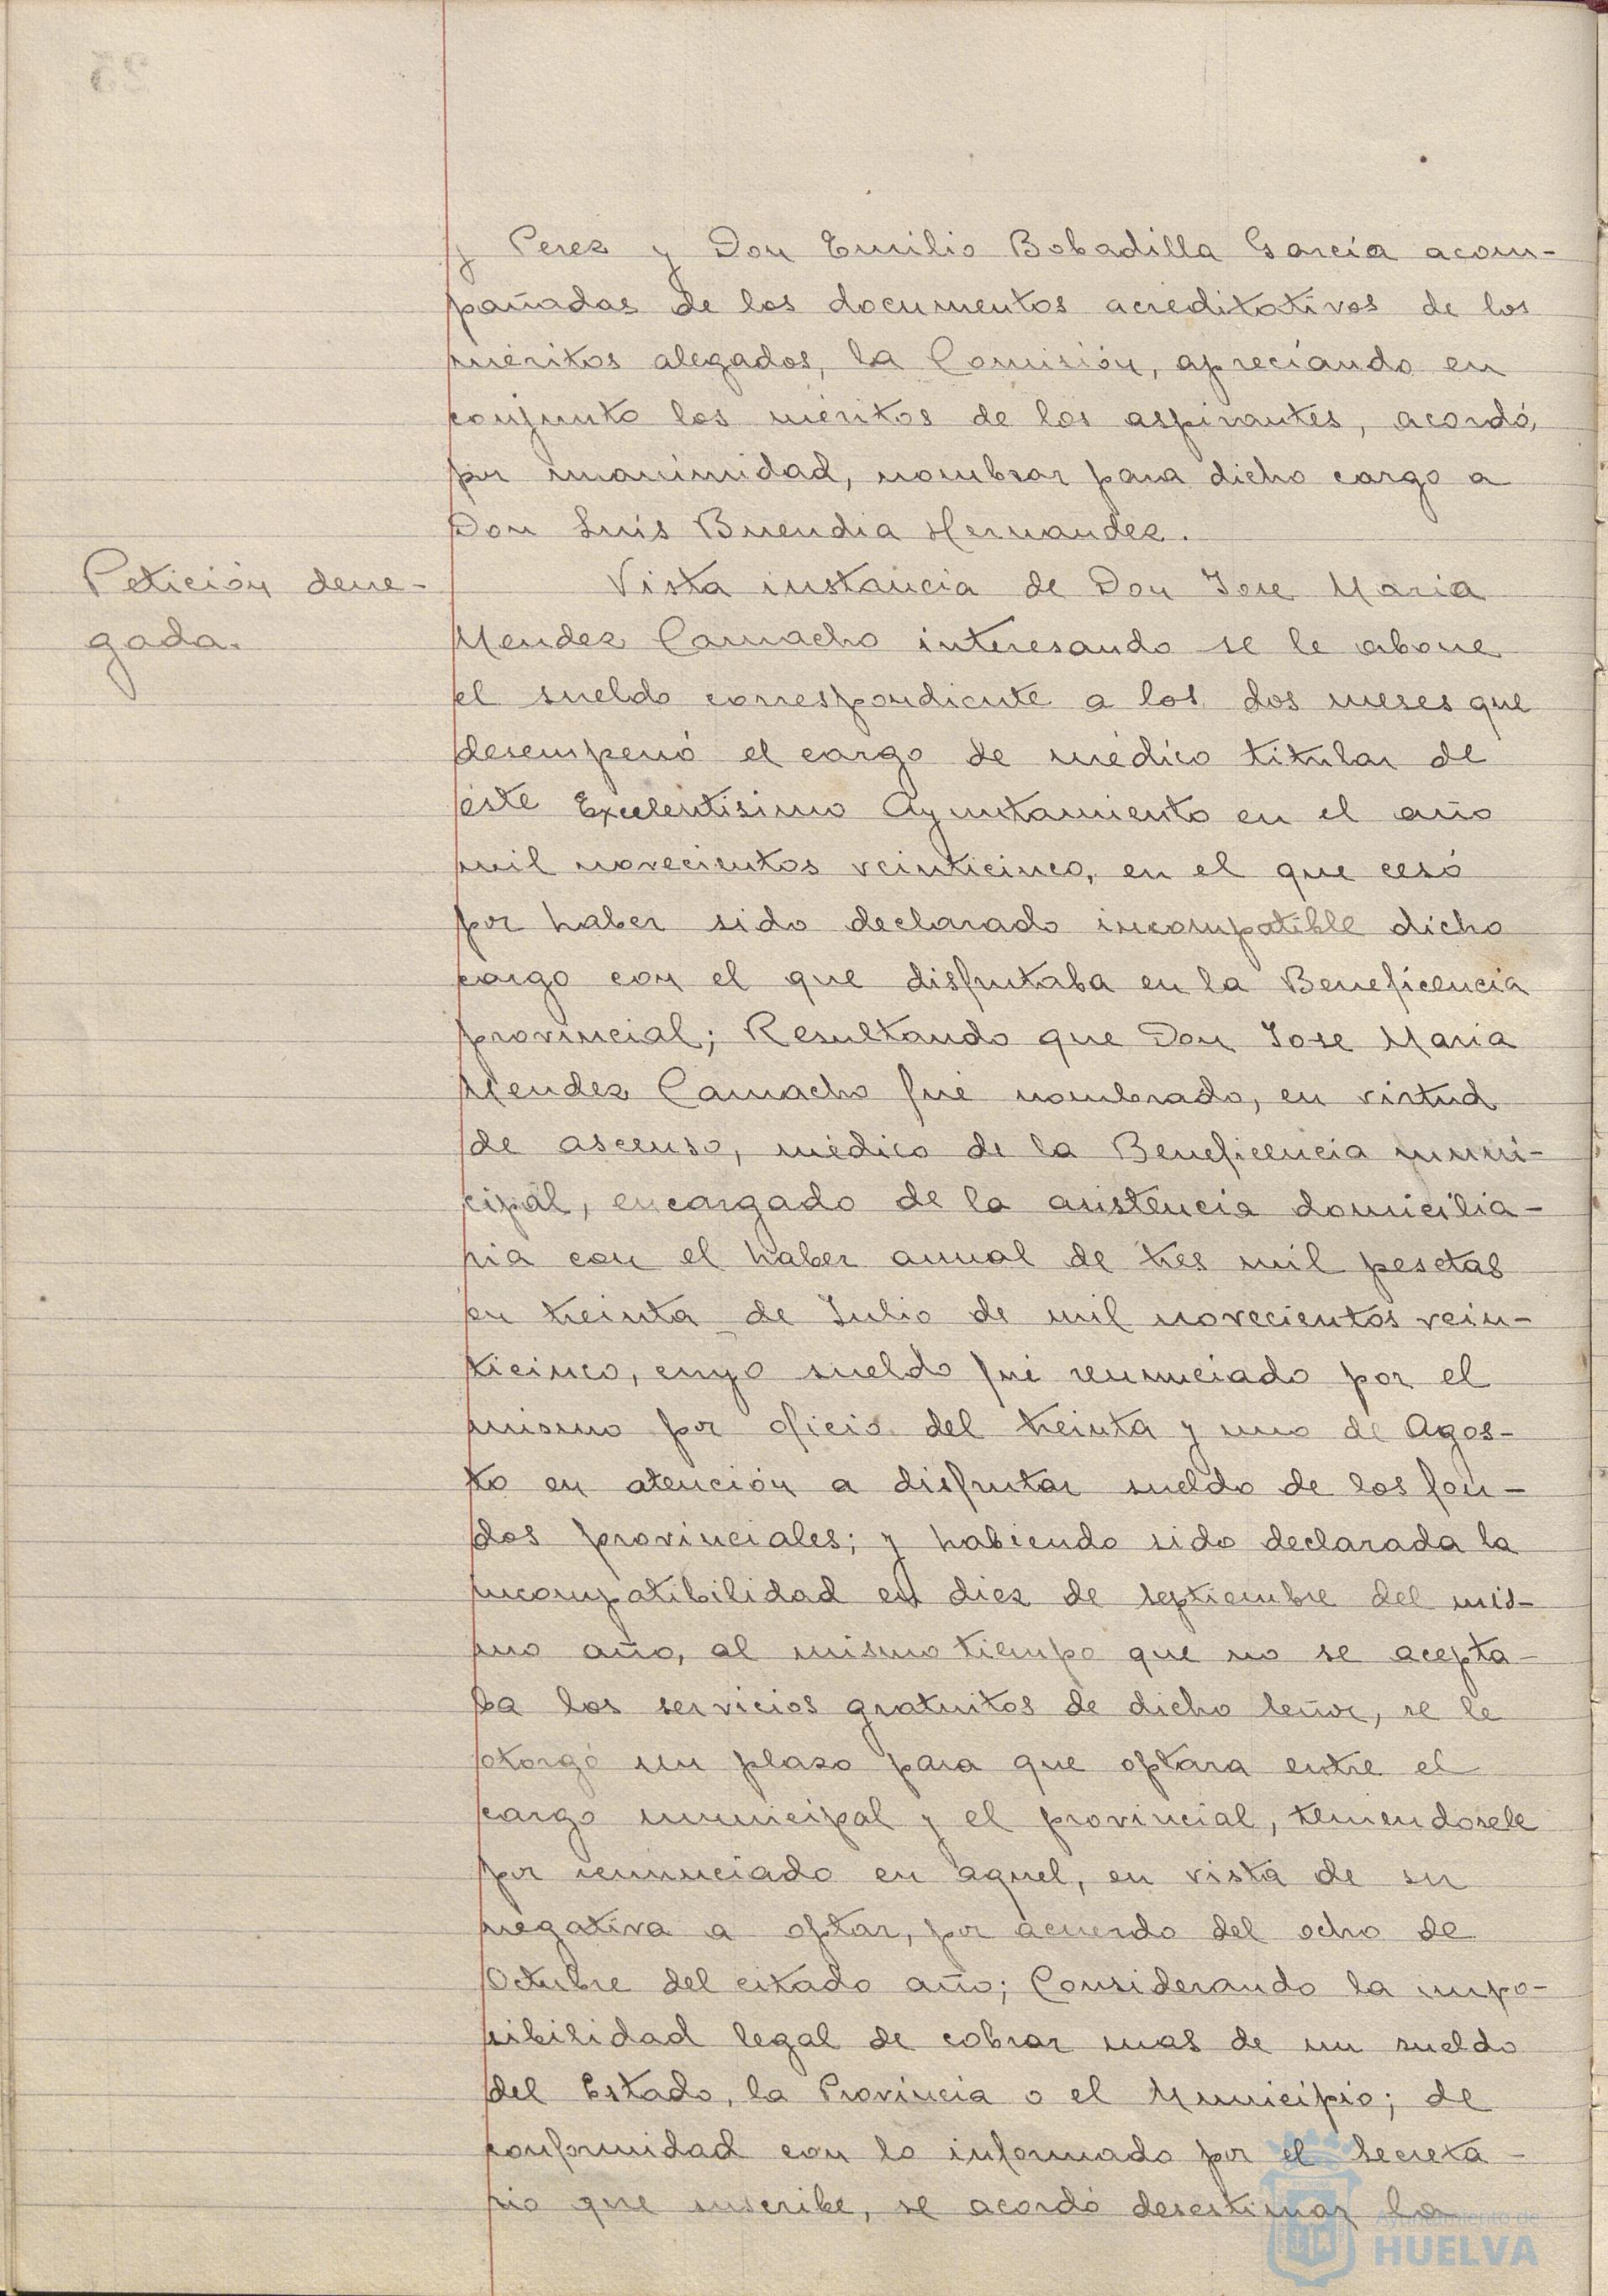 y Perez y Don Emilio Bobadilla García acom-
pañadas de los documentos acreditativos de los
méritos alegados, la Comisión, apreciando en
conjunto los méritos de los aspirantes, acordó,
por unanimidad, nombrar para dicho cargo a
Don Luís Buendia Hernandez.
Petición dene-
gada.
Vista instancia de Don Jose Maria
Mendez Camacho interesando se le abone
el sueldo correspondiente a los dos meses que
desempeñó el cargo de médico titular de
éste Excelentísimo Ayuntamiento en el año
mil novecientos veinticinco, en el que cesó
por haber sido declarado incompatible dicho
cargo con el que disfrutaba en la Beneficencia
provincial; Resultando que Don Jose Maria
Mendez Camacho fué nombrado, en virtud
de ascenso, médico de la Beneficencia muni-
cipal, encargado de la asistencia domicilia-
ria con el haber anual de tres mil pesetas
en treinta de Julio de mil novecientos vein-
ticinco, cuyo sueldo fué renunciado por el
mismo por oficio del treinta y uno de Agos-
to en atención a disfrutar sueldo de los fon-
dos provinciales; y habiendo sido declarada la
incompatibilidad en diez de septiembre del mis-
mo año, al mismo tiempo que no se acepta-
ba los servicios gratuitos de dicho señor, se le
otorgó un plazo para que optara entre el
cargo municipal y el provincial, teniendosele
por renunciado en aquel, en vista de su
negativa a optar, por acuerdo del ocho de
Octubre del citado año; Considerando la impo-
sibilidad legal de cobrar mas de un sueldo
del Estado, la Provincia o el Municipio; de
conformidad con lo informado por el Secreta-
rio que suscribe, se acordó desestimar la
Ayuntamiento de
HUELVA